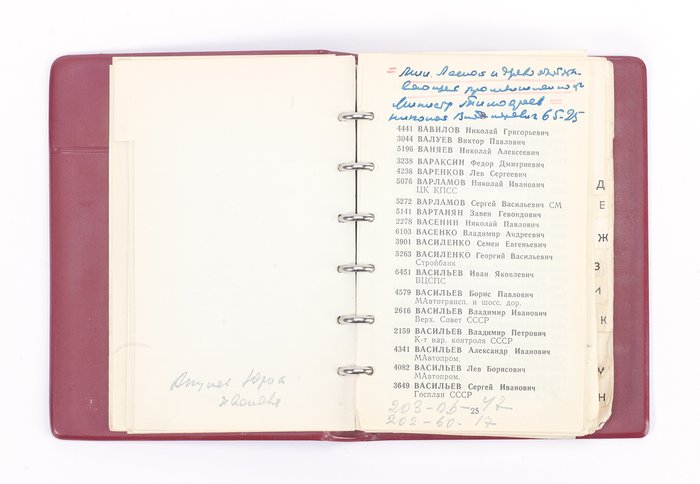 = Мин. Лесной и деревообраба-
тывающая промышленность
Министр Тимофеев =
Николай Владимирович 65-25
4441 ВАВИЛОВ Николай Григорьевич
3044 ВАЛУЕВ Виктор Павлович
5196 ВАНЯЕВ Николай Алексеевич
3238 ВАРАКСИН Федор Дмитриевич
4238 ВАРЕНКОВ Лев Сергеевич
5076 ВАРЛАМОВ Николай Иванович
ЦК КПСС
5272 ВАРЛАМОВ Сергей Васильевич СМ
5141 ВАРТАНЯН Завен Гевондович
2278 ВАСЕНИН Николай Павлович
6103 ВАСЕНКО Владимир Андреевич
3901 ВАСИЛЕНКО Семен Евгеньевич
5263 ВАСИЛЕНКО Георгий Васильевич
Стройбанк
6451 ВАСИЛЬЕВ Иван Яковлевич
ВЦСПС
4579 ВАСИЛЬЕВ Борис Павлович
МАвтотрансп. и шосс. дор.
2616 ВАСИЛЬЕВ Владимир Иванович
Верх. Совет СССР
2159 ВАСИЛЬЕВ Владимир Петрович
К-т нар. контроля СССР
4341 ВАСИЛЬЕВ Александр Иванович
МАвтопром.
4082 ВАСИЛЬЕВ Лев Борисович
МАвтопром.
3649 ВАСИЛЬЕВ Сергей Иванович
Госплан СССР
203-06-47
25
202-60-17
Д
Е
Ж
З
И
К
У
Н